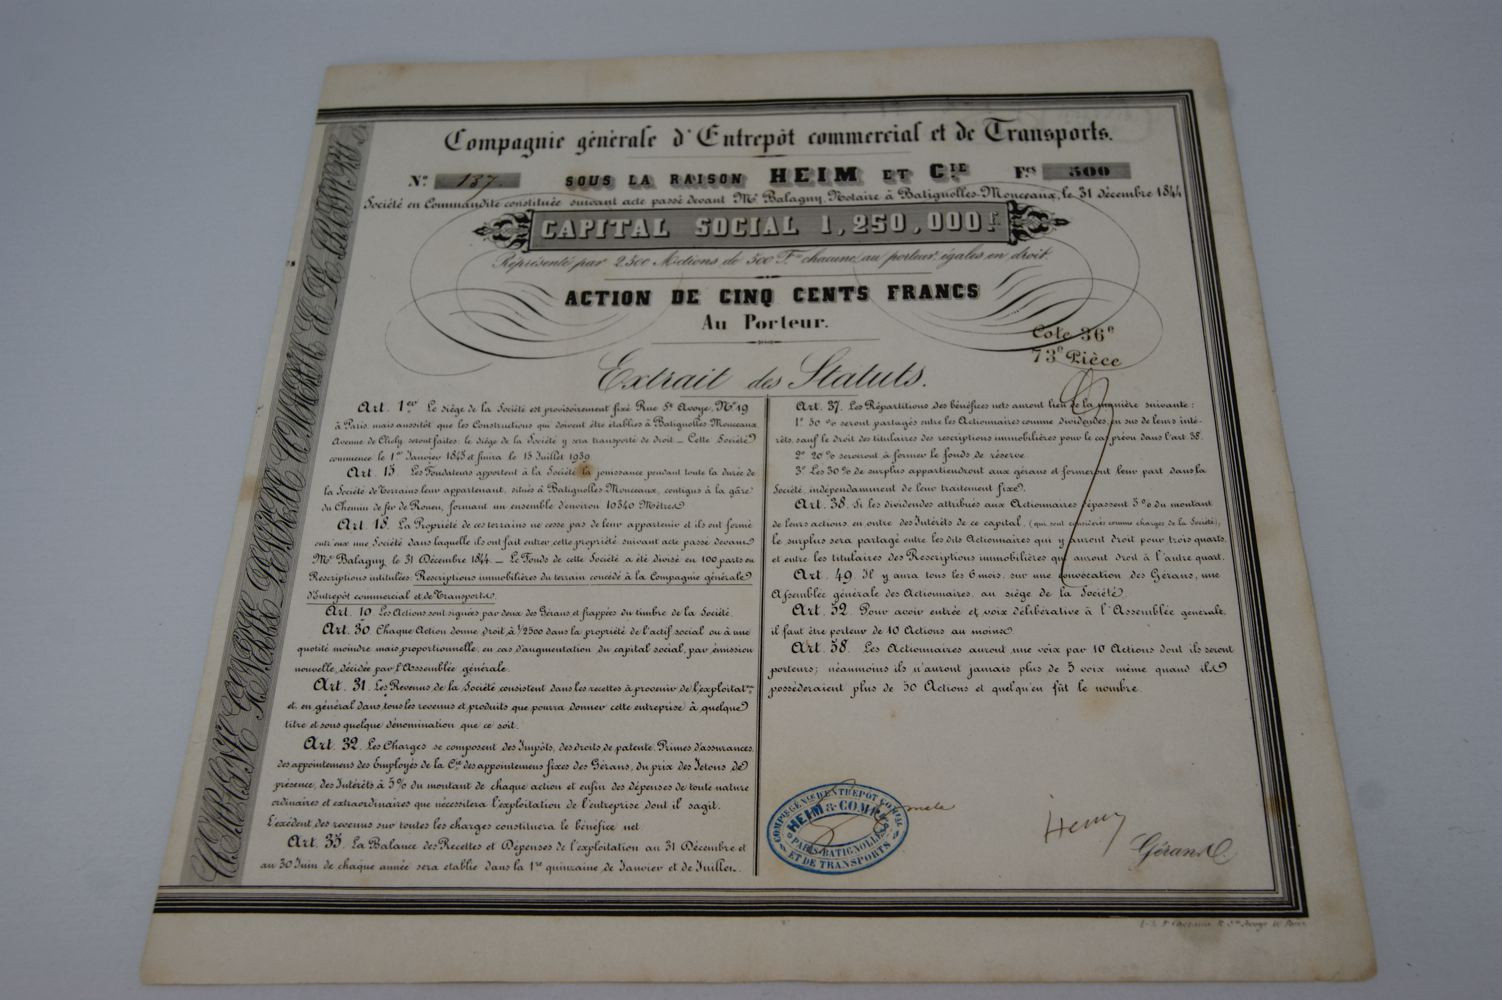 Compagnie générale d'Entrepôt commercial et de Transports.
N° 137.
SOUS LA RAISON HEIM ET CIE
Fcs 500
Société en Commandite constituée suivant acte passé devant Me Balagny, Notaire à Batignolles-Monceaux, le 31 décembre 1844
CAPITAL SOCIAL 1,250,000 f.
Représenté par 2500 Actions de 500 Fcs chacune, au porteur, égales en droit.
ACTION DE CINQ CENTS FRANCS
Au Porteur.
Cote 36e
73e Pièce
Extrait des Statuts.
Art. 1er Le siège de la Société est provisoirement fixé Rue St Avoye, No 19
à Paris, mais aussitôt que les Constructions qui doivent être établies à Batignolles Monceaux
Avenue de Clichy seront faites, le siège de la Société y sera transporté de droit _ Cette Société
commence le 1er Janvier 1845 et finira le 15 Juillet 1939
Art. 15 Les Fondateurs apportent à la Société la jouissance pendant toute la durée de
la Société de Terrains leur appartenant, situés à Batignolles-Monceaux, contigus à la gâre
du Chemin de fer de Rouen, formant un ensemble d'environ 10340 Mètres
Art. 18. La Propriété de ces terrains ne cesse pas de leur appartenir et ils ont formé
entr'eux une Société dans laquelle ils ont fait entrer cette propriété suivant acte passé devant
Me Balagny, le 31 Décembre 1844. _ Le Fonds de cette Société a été divisé en 100 parts ou
Rescriptions intitulées: Rescriptions immobilières du terrain concédé à la Compagnie générale
d'Entrepôt commercial et de Transports.
Art. 19. Les Actions sont signées par deux des Gérans et frappées du timbre de la Société.
Art. 30. Chaque Action donne droit à 1/2500 dans la propriété de l'actif social ou à une
quotité moindre mais proportionnelle, en cas d'augmentation du capital social, par émission
nouvelle, décidée par l'Assemblée générale.
Art. 31. Les Revenus de la Société consistent dans les recettes à provenir de l'exploitaton
et, en général dans tous les revenus et produits que pourra donner cette entreprise à quelque
titre et sous quelque dénomination que ce soit.
Art. 32. Les Charges se composent des Impôts, des droits de patente, Primes d'assurances,
des appointemens des Employés de la Cie, des appointemens fixes des Gérans, du prix des Jetons de
présence, des Intérêts à 5% du montant de chaque action et enfin des dépenses de toute nature
ordinaires et extraordinaires que nécessitera l'exploitation de l'entreprise dont il sagit.
L'excédent des revenus sur toutes les charges constituera le bénéfice net
Art. 35. La Balance des Recettes et Dépenses de l'exploitation au 31 Décembre et
au 30 Juin de chaque année sera établie dans la 1re quinzaine de Janvier et de Juillet.
Art. 37. Les Répartitions des bénéfices nets auront lieu de la manière suivante:
1° 50 % seront partagés entre les Actionnaires comme dividendes, en sus de leurs inté-
rêts, sauf le droit des titulaires des rescriptions immobilières pour le cas prévu dans l'art 38.
2° 20 % serviront à former le fonds de réserve
3° Les 30 % de surplus appartiendront aux gérans et formeront leur part dans la
Société, indépendamment de leur traitement fixe.
Art. 38. Si les dividendes attribués aux Actionnaires dépassent 5 % du montant
de leurs actions, en outre des Intérêts de ce capital, (qui sont considérés comme charges de la Société),
le surplus sera partagé entre les dits Actionnaires qui y auront droit pour trois quarts,
et entre les titulaires des Rescriptions immobilières qui auront droit à l'autre quart.
Art. 49. Il y aura tous les 6 mois, sur une convocation des Gérans, une
Assemblée générale des Actionnaires, au siège de la Société.
Art. 52. Pour avoir entrée et voix délibérative à l'Assemblée générale,
il faut être porteur de 10 Actions au moins.
Art. 58. Les Actionnaires auront une voix par 10 Actions dont ils seront
porteurs; néanmoins ils n'auront jamais plus de 5 voix même quand ils
posséderaient plus de 50 Actions et quelqu'en fût le nombre.
COMPIE GÉNLE D'ENTREPÔT COMCIAL
HEIM & COMPIE
PARIS-BATIGNOLLES
ET DE TRANSPORTS
Gérans.